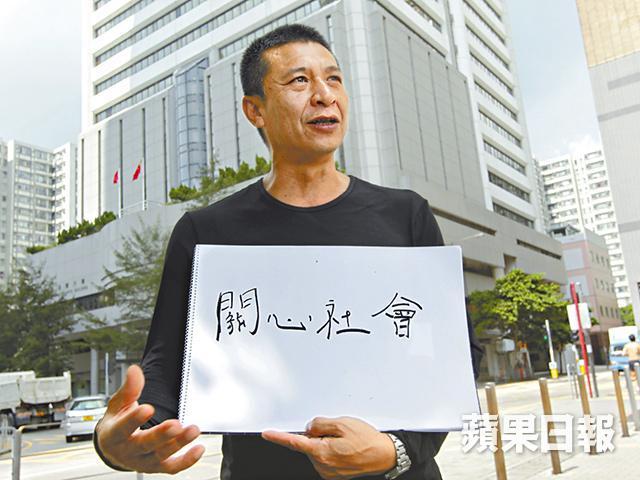 關心社會
蘋果日報